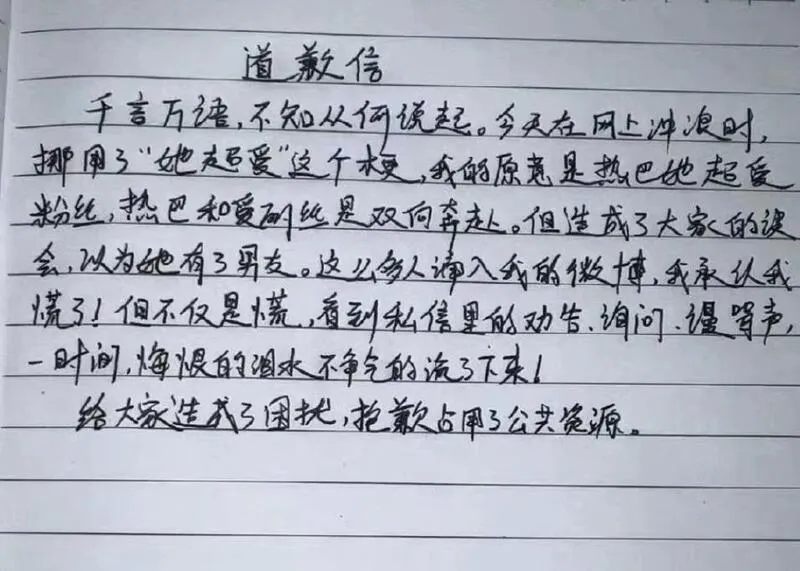 道歉信
千言万语，不知从何说起。今天在网上冲浪时，
挪用了“她超爱”这个梗，我的原意是热巴她超爱
粉丝，热巴和爱丽丝是双向奔赴。但造成了大家的误
会，以为她有了男友。这么多人涌入我的微博，我承认我
慌了！但不仅是慌，看到私信里的劝告、询问、谩骂声，
一时间，悔恨的泪水不争气的流了下来！
给大家造成了困扰，抱歉占用了公共资源。